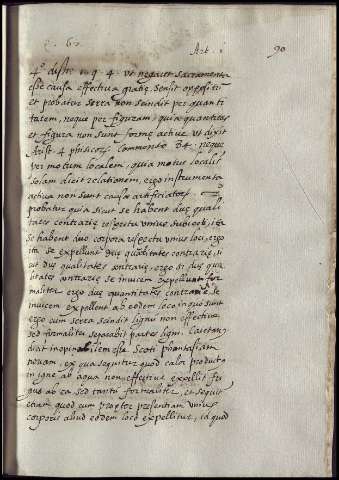 Art. i
90
4º distin 1 q. 4. ut negaret sacramenta
esse causa effectiva gratiæ. Sensit oppositū
et probatur serra non scindit per quanti
tatem, neque per figuram, quia quantitas
et figura non sunt formæ activæ. ut dixit
Arist. 4 phisicorū Commento 84. neque
per motum localem, quia motus localis
solam dicit relationem, ergo instrumenta
activa non sunt causæ artificiatorū.
probatur quia sicut se habent duæ quali
tates contrariæ respectu unius subiecti, ita
se habent duo corpora respectu unius loci, ergo
ita se expellunt duæ quantitates contrariæ, si
cut duæ qualitates contrariæ, ergo si duæ qua
litates contrariæ se invicem expellunt for
maliter ergo duæ quantitates contrariæ se
invicem expellent ab eodem loco in quo sunt
ergo cum serra scindit lignū non effective
sed formaliter separabit partes ligni. Caietan,
dicit inopinabilem esse Scoti phantasiam
novam, ex qua sequitur quod calor producto
in igne ab aqua non effective expellit fri
gus ab ea sed tantū formaliter, et sequit
etiam quod cum propter presentiam unius
corporis aliud eodem loco expellitur, id quod